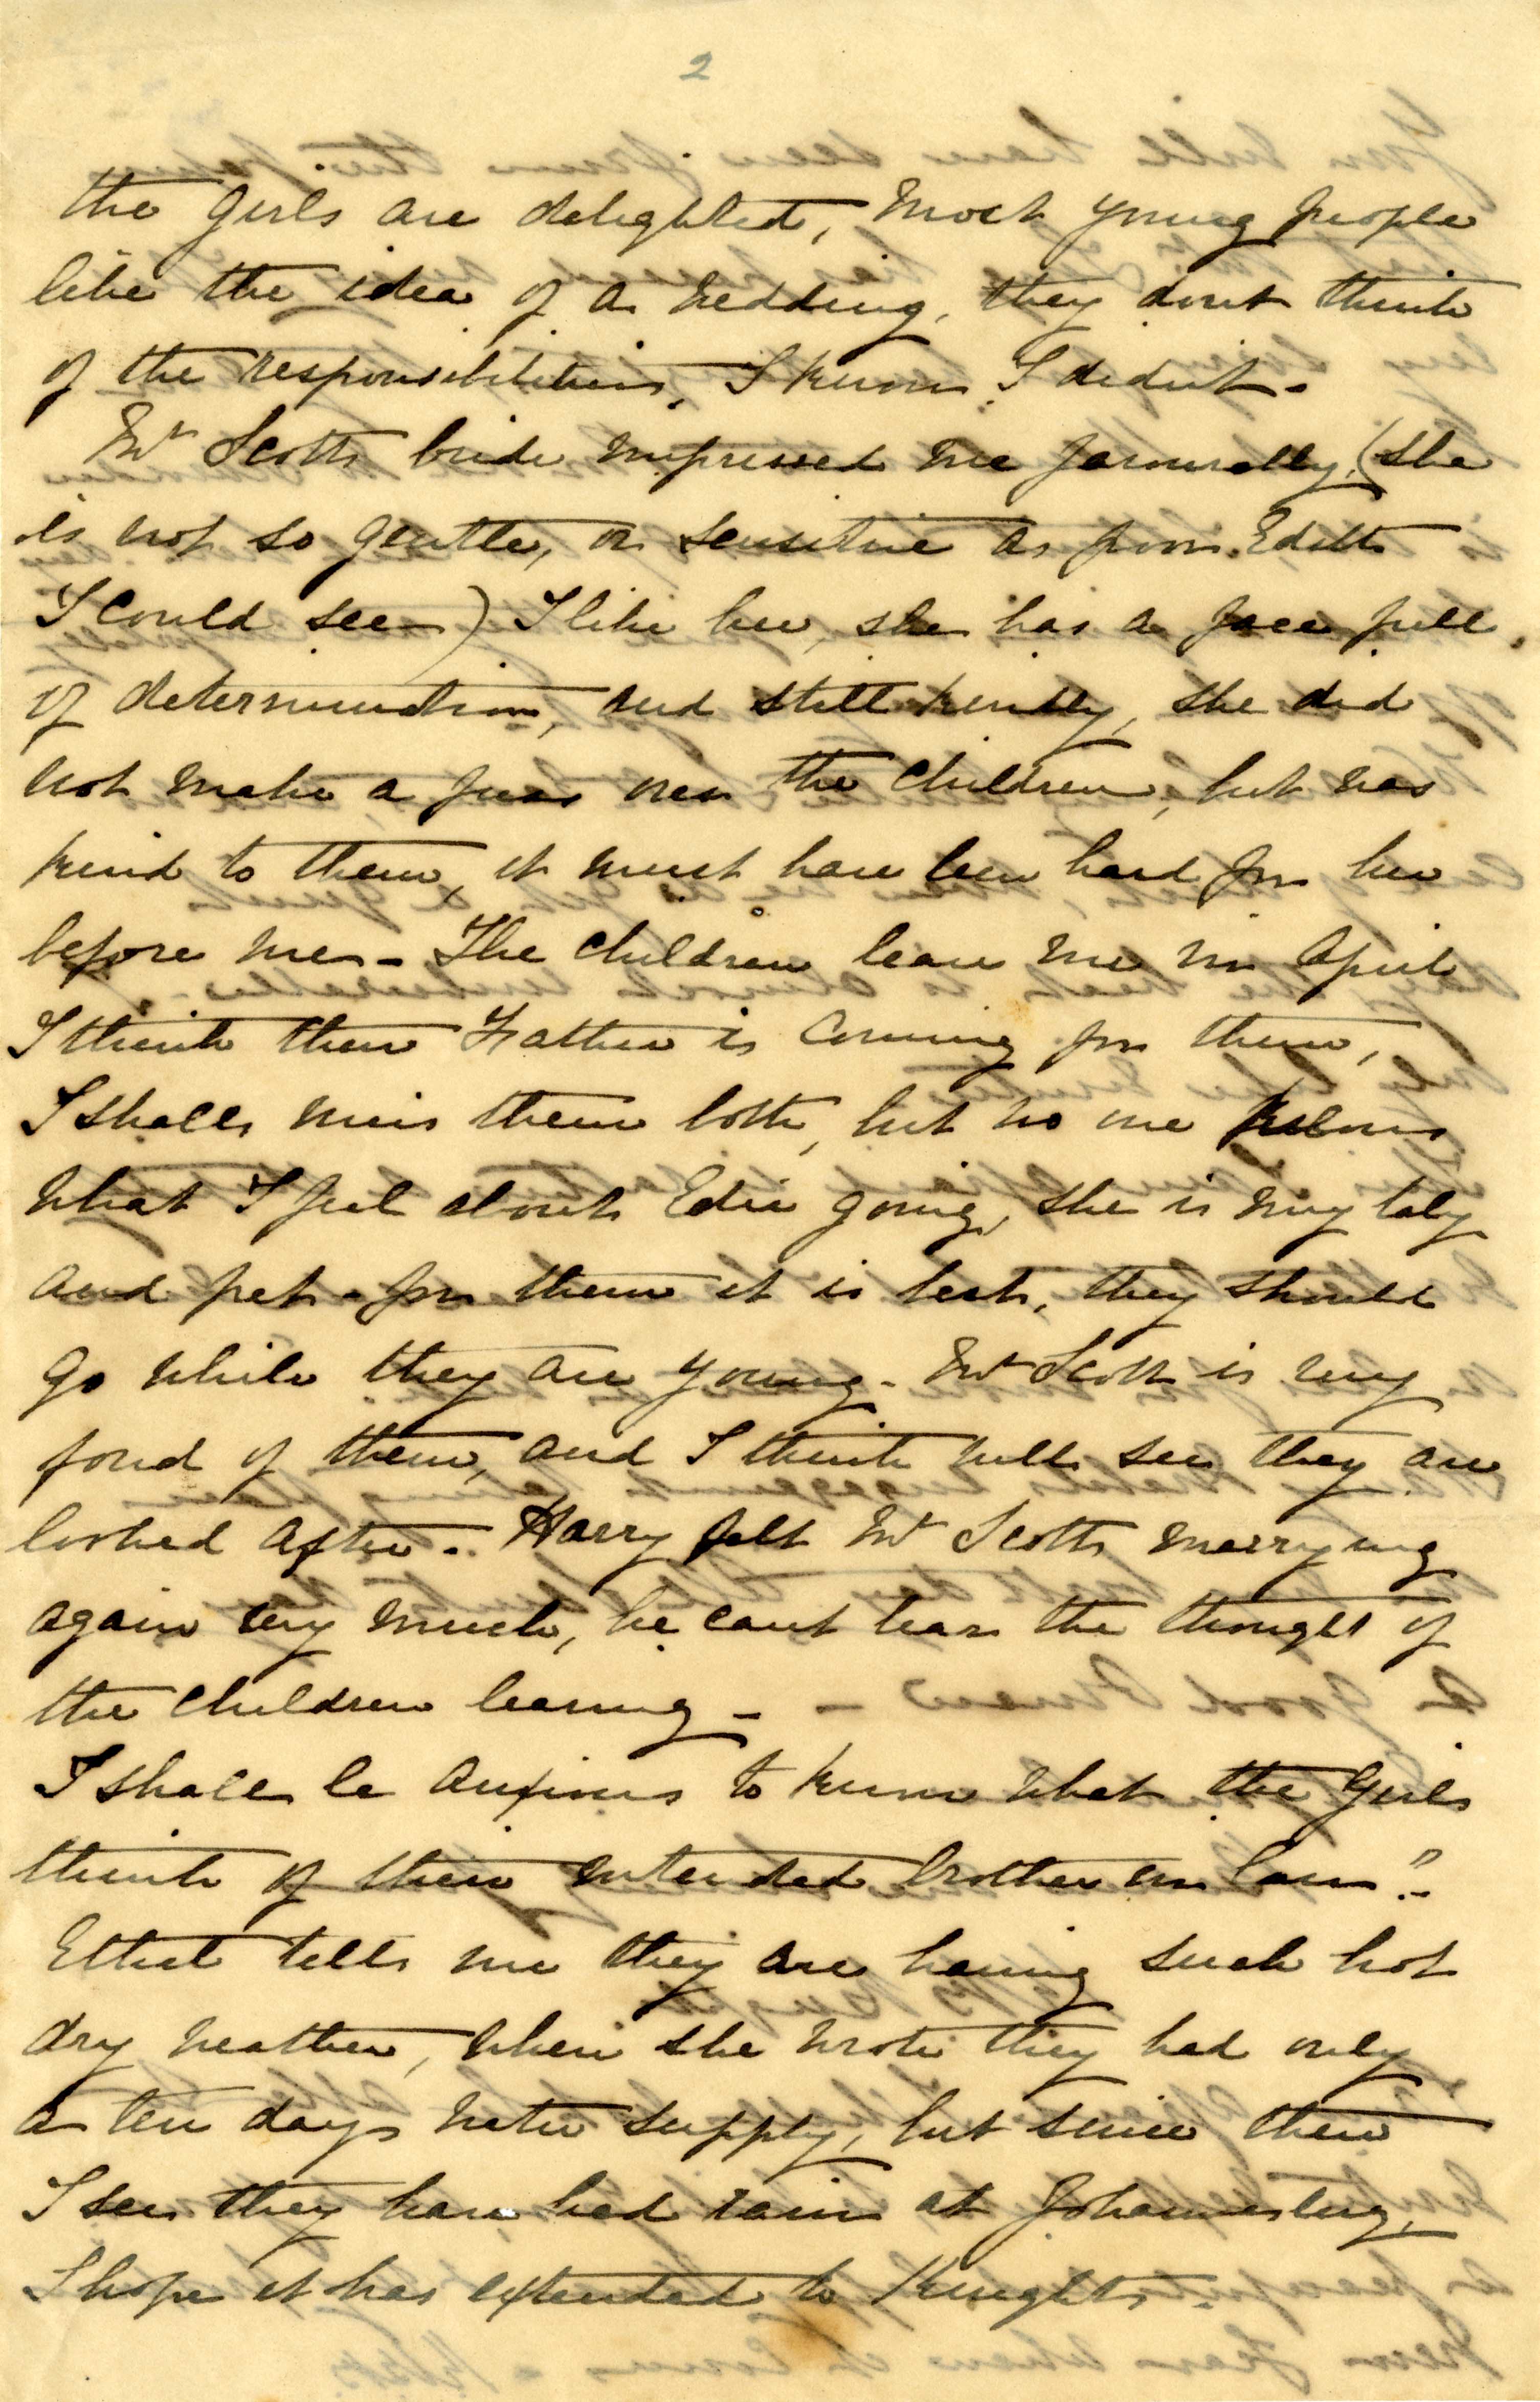 2
the girls are delighted, most young people
like the idea of a wedding, they dont think
of the responsibilities, I know I didnt -
Mr Scotts bride impressed me favourably, (she
is not so gentle, or sensitive as poor Edith
I could see) I like her, she has a face full
of determination, and still kindly, she did
not make a fuss over the children, but was
kind to them, it must have been hard for her
before me - The children leave me in April
I think their Father is coming for them,
I shall miss them both, but no one knows
what I feel about Edie going, she is my baby
and pet - for them it is best, they should
go while they are young - Mr Scott is very
fond of them, and I think will see they are
looked after - Harry felt Mr Scotts marrying
again very much, he cant bear the thought of
the children leaving -
I shall be anxious to know what the girls
think of their intended brother in law? -
Ethel tells me they are having such hot
dry weather, when she wrote they had only
a ten days water supply, but since then
I see they have had rain at Johannesburg,
I hope it has extended to Knights -